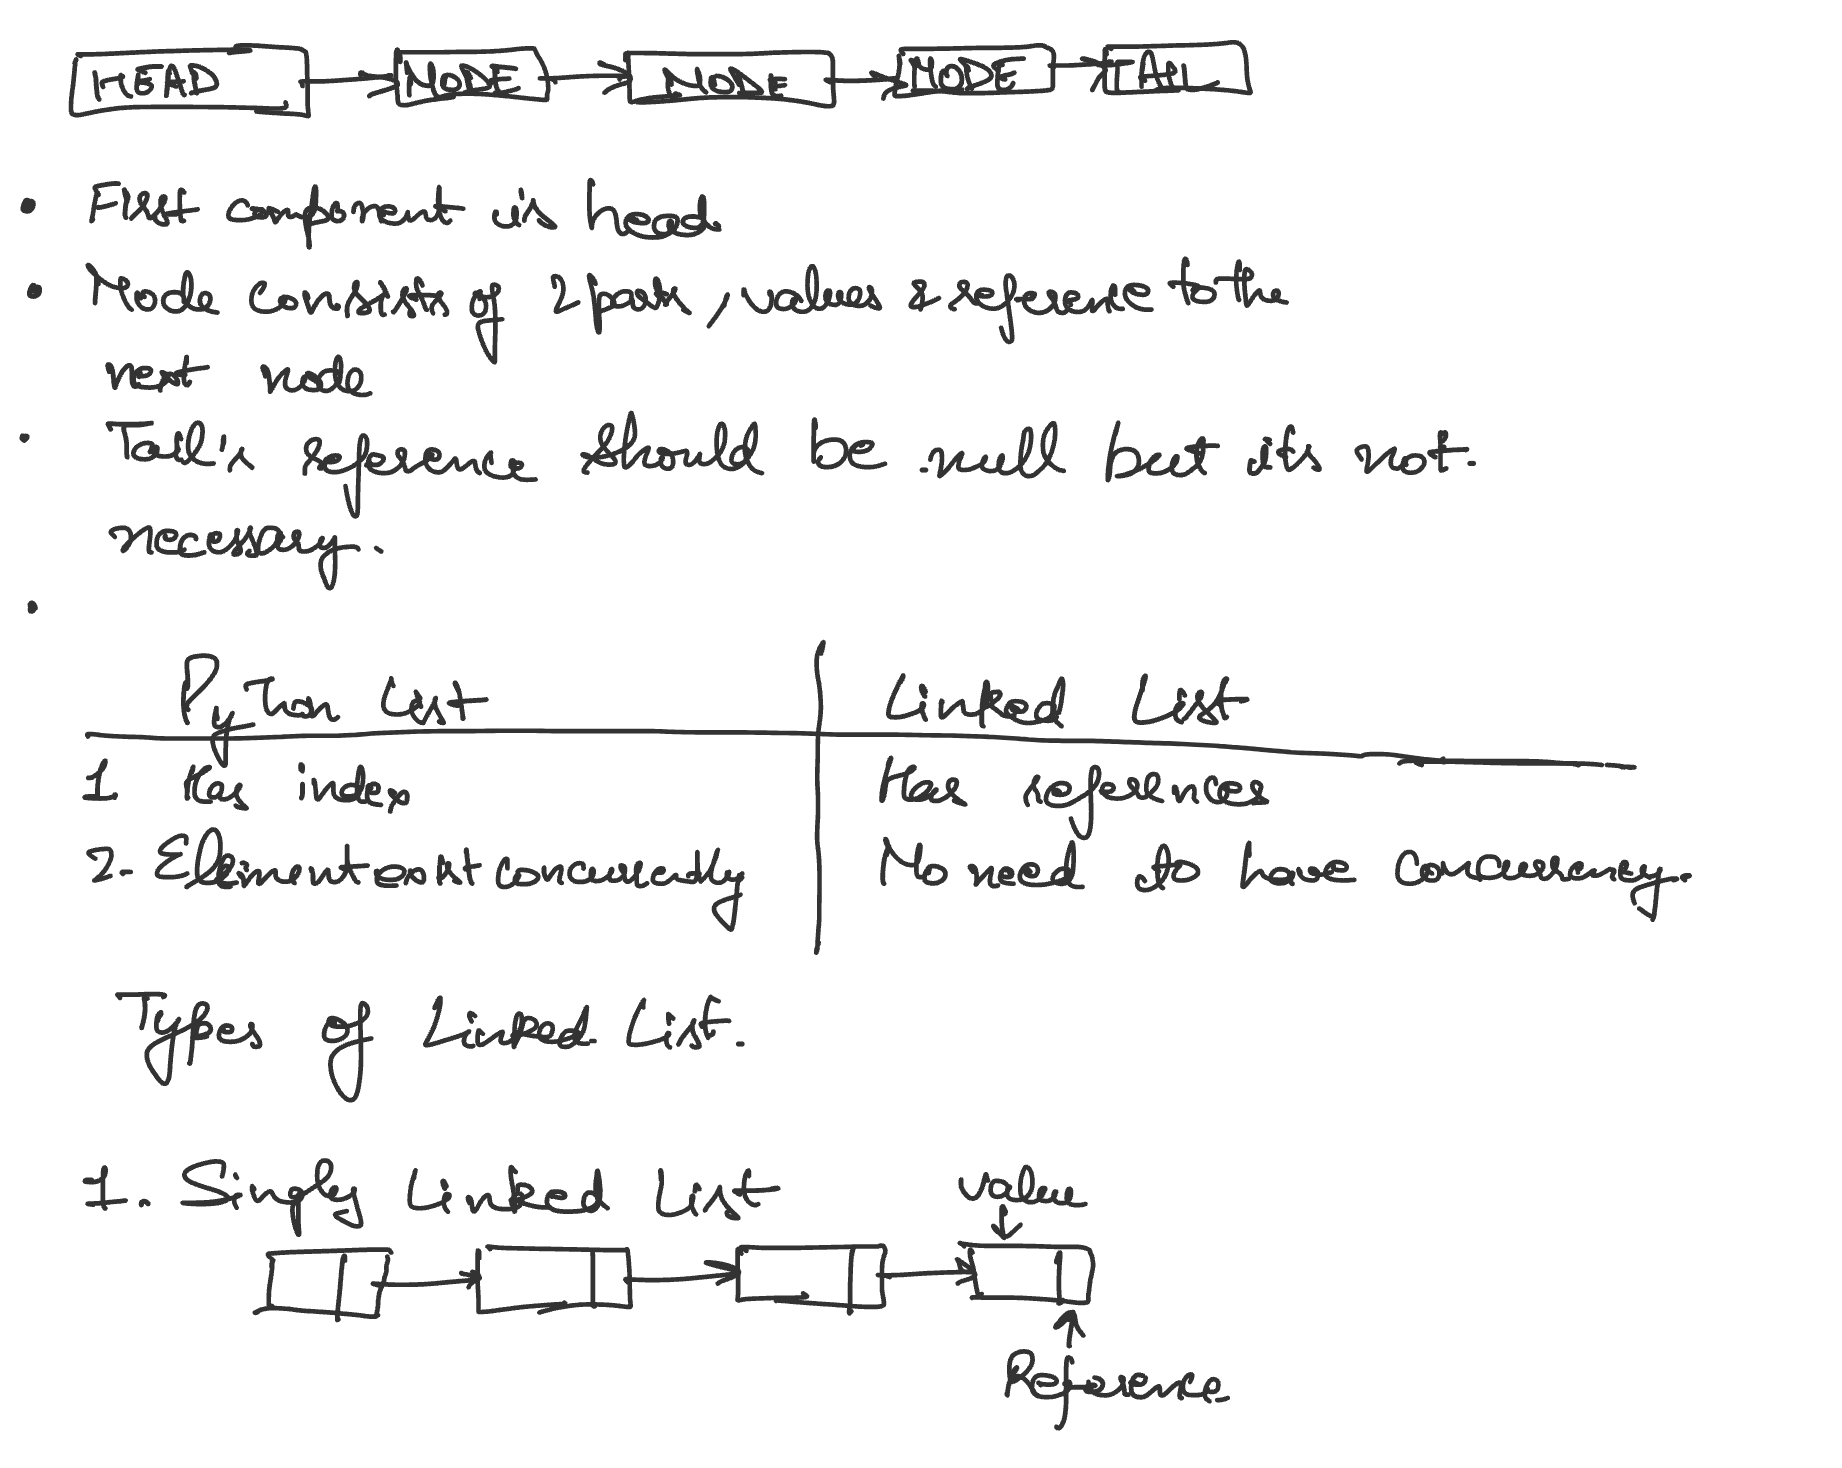 HEAD NODE NODE NODE TAIL
• First component is head
• Node consists of 2 parts, values & reference to the
next node
• Tail's reference should be null but its not
necessary.
•
Python List Linked List
1 Has index Has references
2. Element exist concurrently No need to have concurrency.
Types of Linked List.
1. Singly Linked List value
Reference